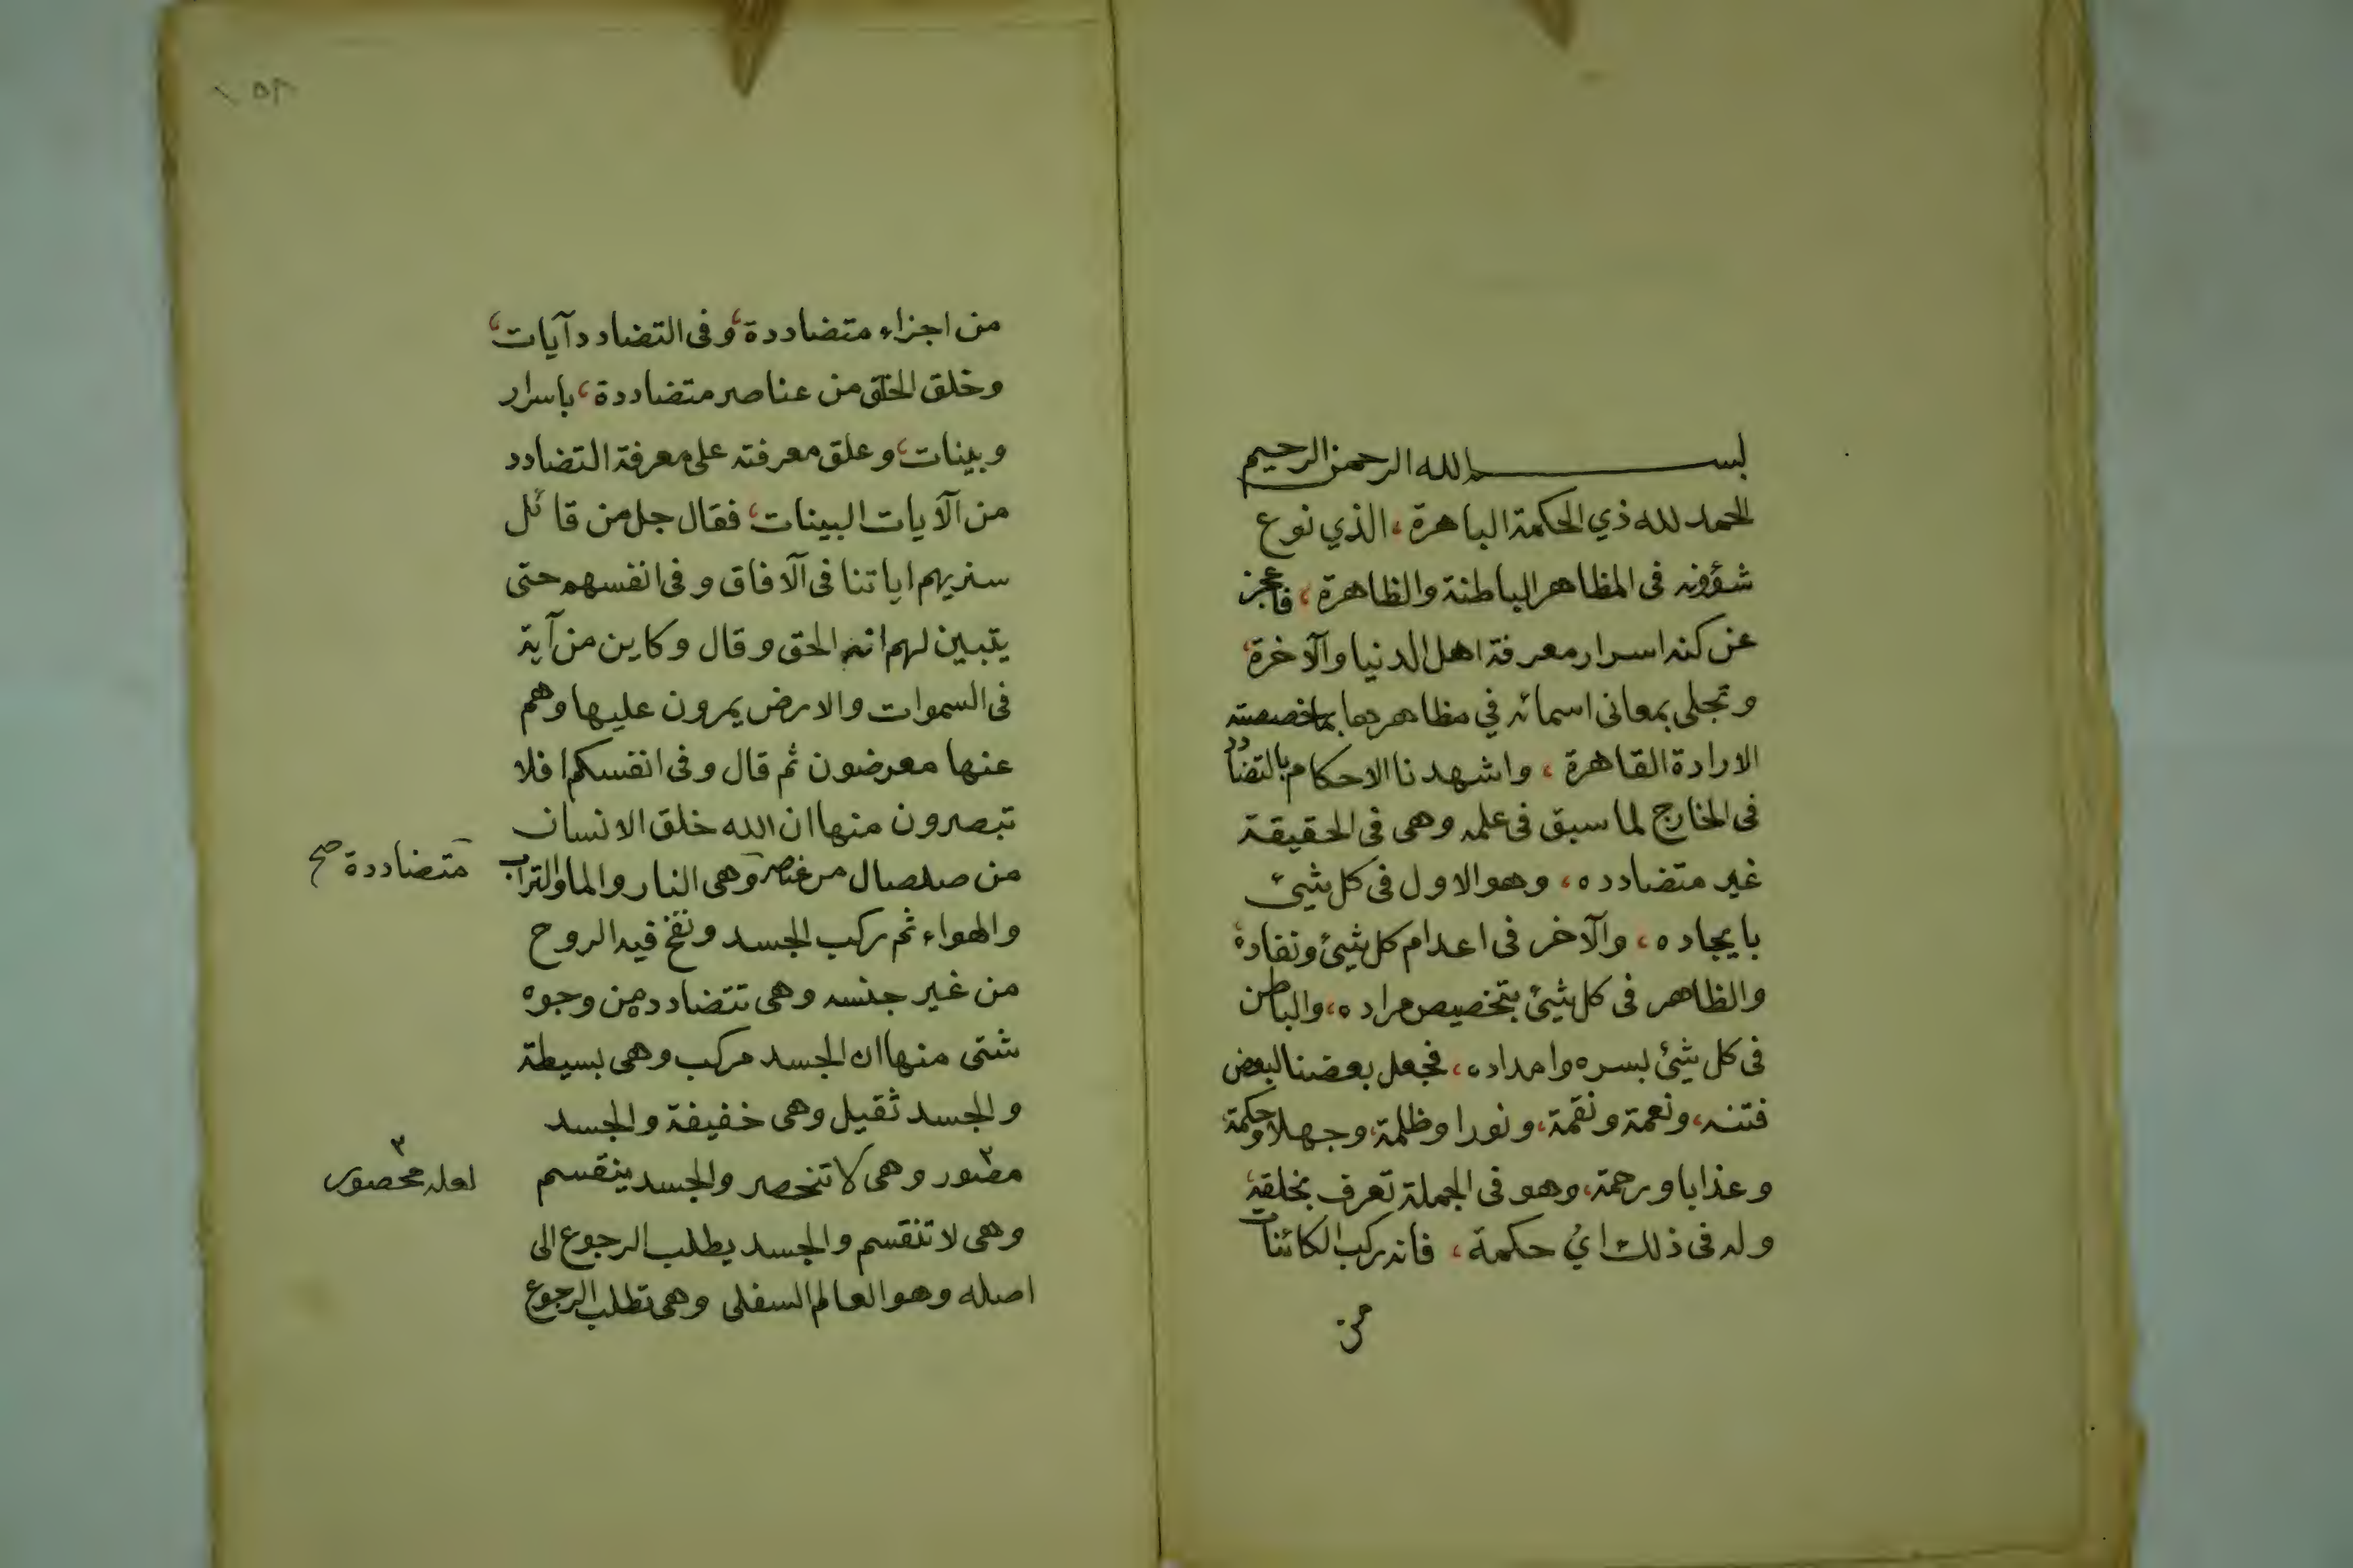 بسم الله الرحمن الرحيم
الحمد لله ذي الحكمة الباهرة، الذي نوع
شؤونه فى المظاهر الباطنة والظاهرة، فاعجز
عن كنه اسرار معرفة اهل الدنيا والآخرة،
وتجلى بمعانى اسمائه في مظاهرها بما خصصته
الارادة القاهرة، واشهدنا الاحكام بالتضادد
فى الخارج لما سبق فى علمه وهى فى الحقيقة
غير متضادده، وهو الاول فى كل شيئ
بايجاده، والآخر فى اعدام كل شيئ ونفاده،
والظاهر فى كل شيئ بتخصيص مراده، والباطن
فى كل شيئ بسره وامداده، فجعل بعضنا لبعض
فتنه، ونعمة ونقمة، ونورا وظلمة، وجهلا وحكمة،
وعذابا ورحمة، وهو فى الجملة تعرف بخلقه،
وله فى ذلك اي حكمة، فانه ركب الكائنات
من
من اجزاء متضاددة، وفى التضادد آيات،
وخلق الخلق من عناصر متضاددة، باسرار
وبينات، وعلق معرفته على معرفة التضادد
من الآيات البينات، فقال جل من قائل
سنريهم اياتنا فى الآفاق وفى انفسهم حتى
يتبين لهم انه الحق وقال وكاين من آية
فى السموات والارض يمرون عليها وهم
عنها معرضون ثم قال وفى انفسكم افلا
تبصرون منها ان الله خلق الانسان
من صلصال من عناصر وهى النار والما والتراب
متضاددة صح
والهواء ثم ركب الجسد ونفخ فيه الروح
من غير جنسه وهى تتضادده من وجوه
شتى منها ان الجسد مركب وهى بسيطة
والجسد ثقيل وهى خفيفة والجسد
مصور وهى لا تنحصر والجسد ينقسم
لعله محصور
وهى لا تنقسم والجسد يطلب الرجوع الى
اصله وهو العالم السفلى وهى تطلب الرجوع